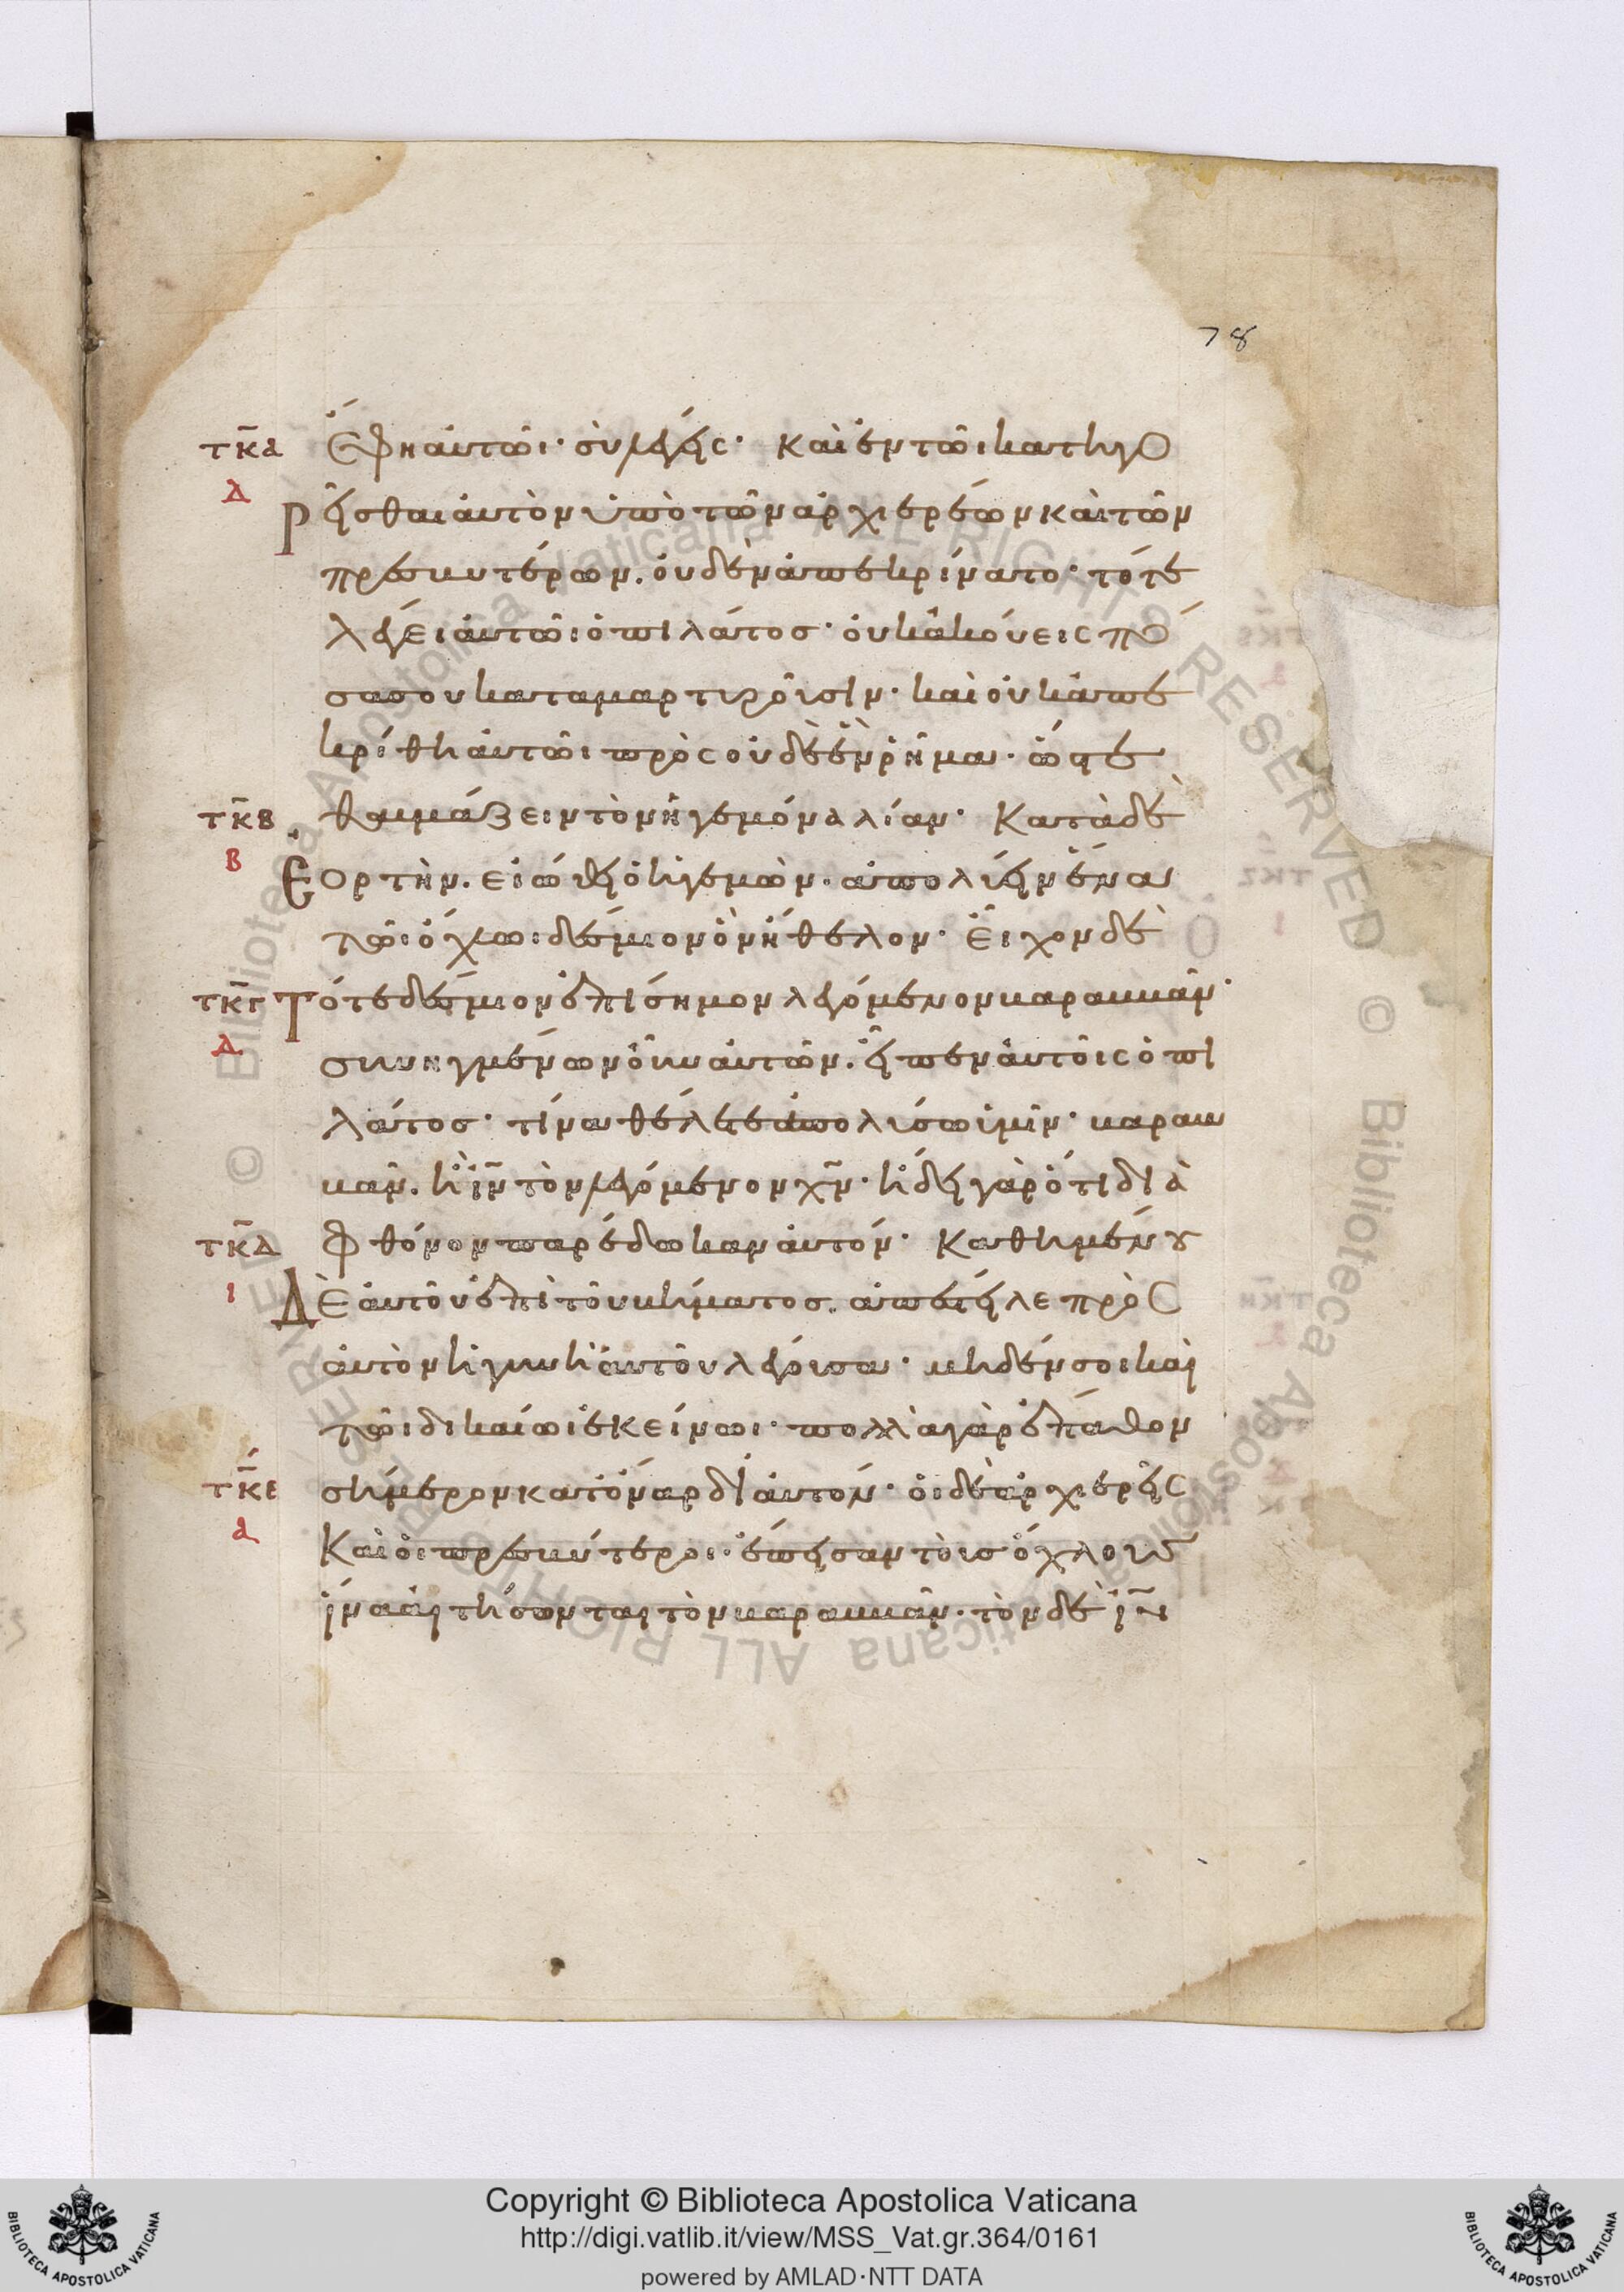 78
τκα ἔφη αὐτῶι· σὺ λέγεις· καὶ ἐν τῶι κατηγο
Δ
ρεῖσθαι αὐτὸν ὑπὸ τῶν ἀρχιερέων καὶ τῶν
πρεσβυτέρων. οὐδὲν ἀπεκρίνατο· τότε
λέγει αὐτῶι ὁ πιλάτος· οὐκ ἀκούεις πό
σα σου καταμαρτυροῦσιν· καὶ οὐκ ἀπε
κρίθη αὐτῶι πρὸς οὐδὲ ἓν ῥῆμα· ὥστε
τκβ θαυμάζειν τὸν ἡγεμόνα λίαν· Κατὰ δὲ
β
ἑορτὴν. εἰώθει ὁ ἡγεμὼν. ἀπολύειν ἕνα
τῶι ὄχλωι δέσμιον ὃν ἤθελον· εἶχον δὲ
τκγ τότε δέσμιον ἐπίσημον λεγόμενον βαραββᾶν·
Δ
συνηγμένων οὖν αὐτῶν. εἶπεν αὐτοῖς ὁ πι
λάτος· τίνα θέλετε ἀπολύσω ὑμῖν· βαραβ
βᾶν. ἢ ι̅ν̅ τὸν λεγόμενον χ̅ν̅· ἤδει γὰρ ὅτι διὰ
τκδ φθόνον παρέδωκαν αὐτόν· Καθημένου
ι
δὲ αὐτοῦ ἐπὶ τοῦ βήματος. ἀπέστειλε πρὸς
αὐτὸν ἡ γυνὴ αὐτοῦ λέγουσα· μηδέν σοι καὶ
τῶι δικαίωι ἐκείνωι· πολλὰ γὰρ ἔπαθον
τκε σήμερον κατ' ὄναρ δι' αὐτόν· οἱ δὲ ἀρχιερεῖς
α
καὶ οἱ πρεσβύτεροι. ἔπεισαν τοὺς ὄχλους
ἵνα αἰτήσωνται τὸν βαραββᾶν. τὸν δὲ ι̅ν̅
Copyright © Biblioteca Apostolica Vaticana
http://digi.vatlib.it/view/MSS_Vat.gr.364/0161
powered by AMLAD·NTT DATA
BIBLIOTECA APOSTOLICA VATICANA
BIBLIOTECA APOSTOLICA VATICANA